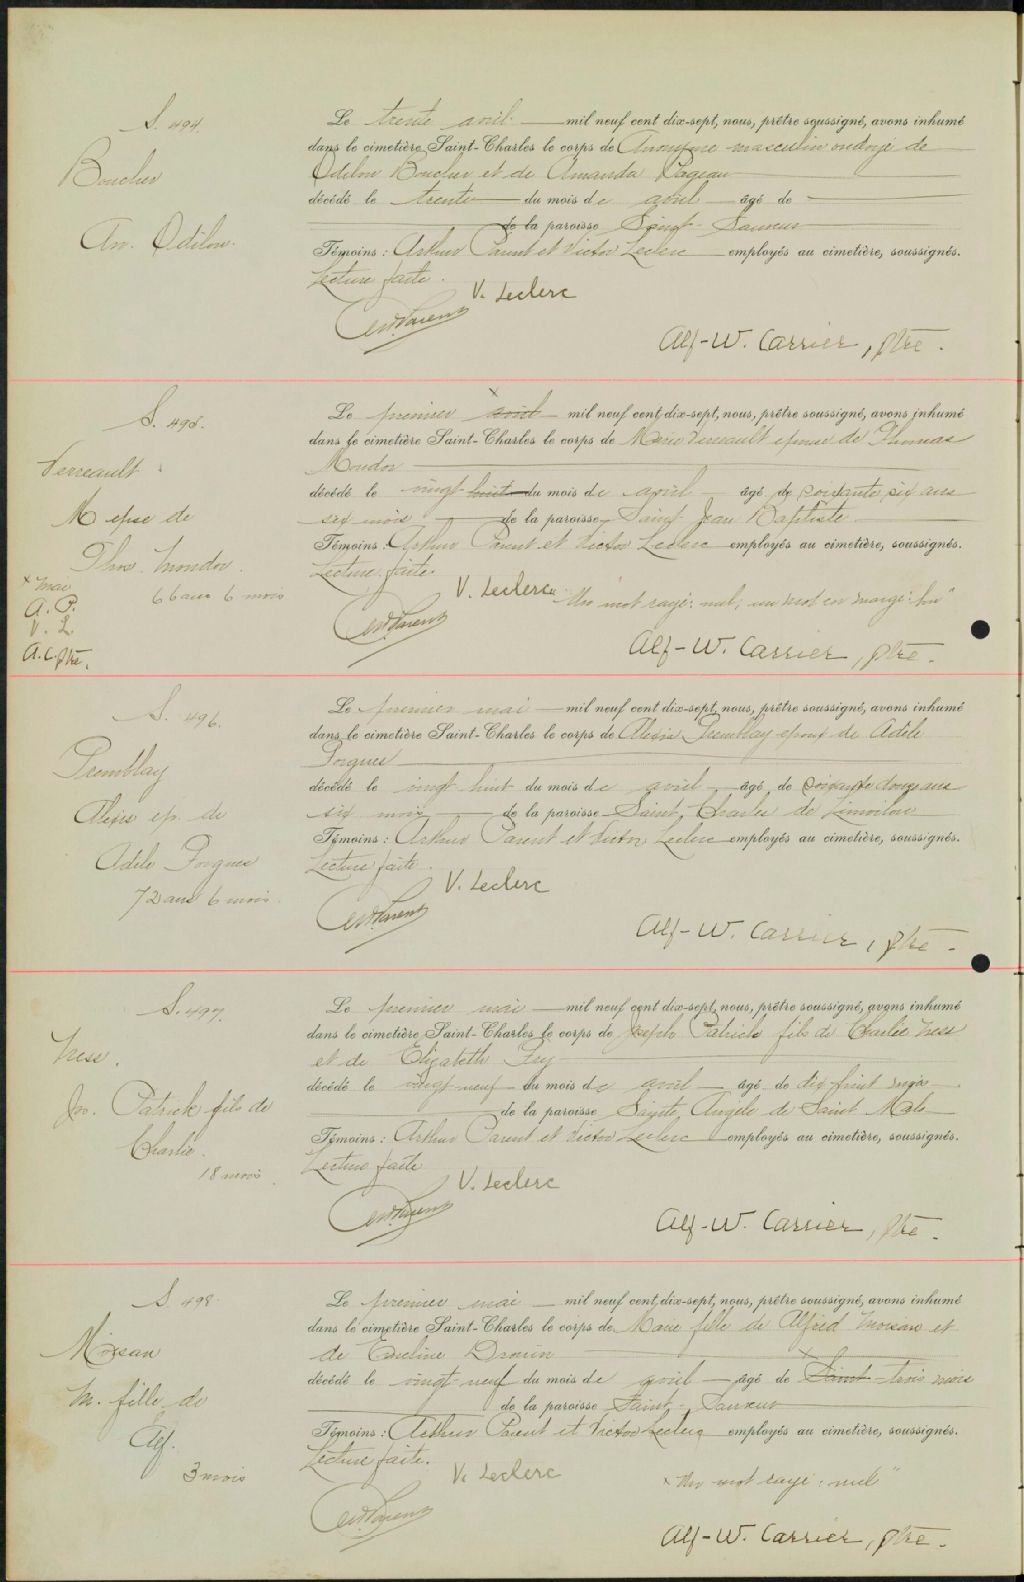 S. 494.
Boucher
An. Odilon.
Le trente avril mil neuf cent dix-sept, nous, prêtre soussigné, avons inhumé
dans le cimetière Saint-Charles le corps de Anonyme masculin ondoyé de
Odilon Boucher et de Amanda Pageau
décédé le trente du mois de avril âgé de
de la paroisse Saint-Sauveur
Témoins : Arthur Parent et Victor Leclerc employés au cimetière, soussignés.
Lecture faite.
V. Leclerc
Art. Parent
Alf-W. Carrier, ptre.
S. 495.
Verreault
M épse de
Thos. Mondor.
66 ans 6 mois
x mai
A. P.
V. L.
A.C. ptre.
Le premier x avril mil neuf cent dix-sept, nous, prêtre soussigné, avons inhumé
dans le cimetière Saint-Charles le corps de Marie Verreault épouse de Thomas
Mondor
décédé le vingt-huit du mois de avril âgé de soixante six ans
six mois de la paroisse Saint Jean Baptiste
Témoins : Arthur Parent et Victor Leclerc employés au cimetière, soussignés.
Lecture faite.
V. Leclerc
"Un mot rayé: nul; un mot en marge: bon"
Art. Parent
Alf-W. Carrier, ptre.
S. 496.
Tremblay
Alexis ép. de
Adèle Porgues
72 ans 6 mois.
Le premier mai mil neuf cent dix-sept, nous, prêtre soussigné, avons inhumé
dans le cimetière Saint-Charles le corps de Alexis Tremblay époux de Adèle
Porgues
décédé le vingt huit du mois de avril âgé de soixante douze ans
six mois de la paroisse Saint Charles de Limoilou
Témoins : Arthur Parent et Victor Leclerc employés au cimetière, soussignés.
Lecture faite.
V. Leclerc
Art. Parent
Alf-W. Carrier, ptre.
S. 497.
Ness.
Jos. Patrick fils de
Charlie.
18 mois
Le premier mai mil neuf cent dix-sept, nous, prêtre soussigné, avons inhumé
dans le cimetière Saint-Charles le corps de Joseph Patrick fils de Charlie Ness
et de Elizabeth
décédé le vingt-neuf du mois de avril âgé de dix huit mois
de la paroisse Sainte Angèle de Saint Malo
Témoins : Arthur Parent et Victor Leclerc employés au cimetière, soussignés.
Lecture faite
V. Leclerc
Art. Parent
Alf-W. Carrier, ptre.
S. 498.
Moisan
M. fille de
Alf.
3 mois
Le premier mai mil neuf cent dix-sept, nous, prêtre soussigné, avons inhumé
dans le cimetière Saint-Charles le corps de Marie fille de Alfred Moisan et
de Emeline Drouin
décédé le vingt-neuf du mois de avril âgé de x Saint trois mois
de la paroisse Saint-Sauveur
Témoins : Arthur Parent et Victor Leclerc employés au cimetière, soussignés.
Lecture faite.
V. Leclerc
x "Un mot rayé : nul"
Art. Parent
Alf-W. Carrier, ptre.